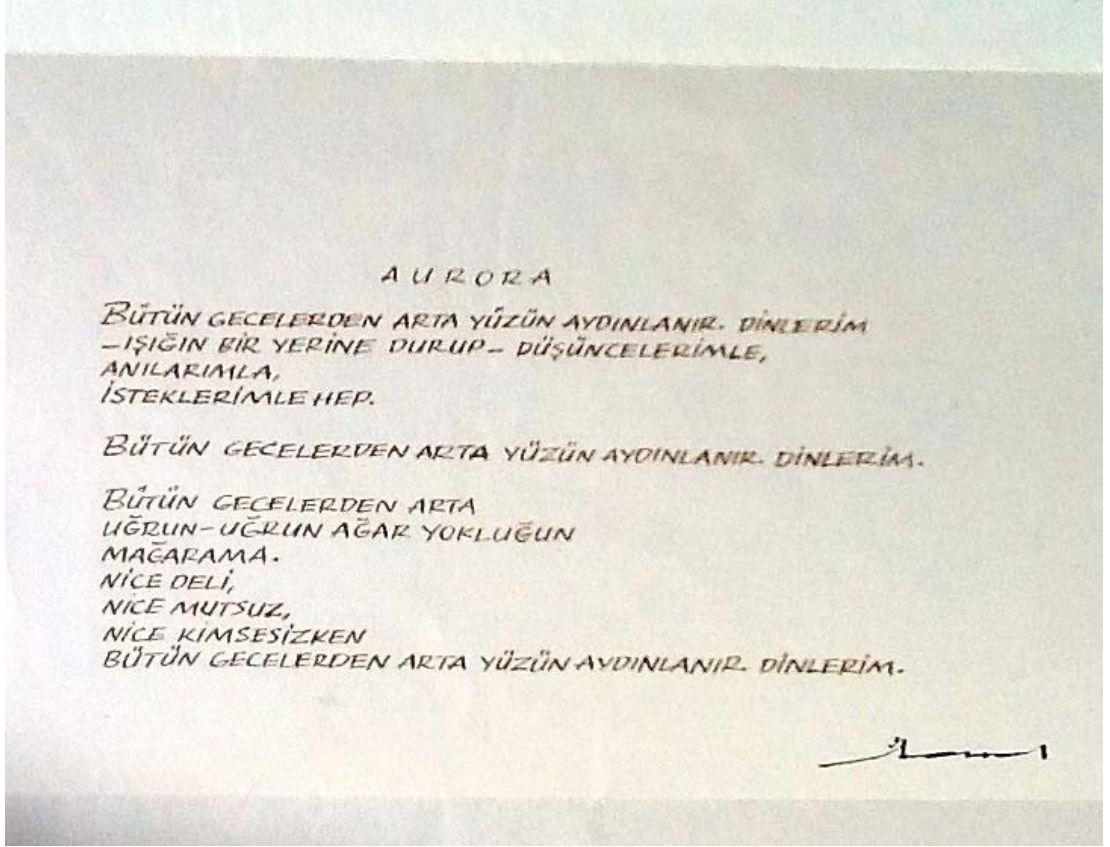 AURORA
BÜTÜN GECELERDEN ARTA YÜZÜN AYDINLANIR. DİNLERİM
–IŞIĞIN BİR YERİNE DURUP– DÜŞÜNCELERİMLE,
ANILARIMLA,
İSTEKLERİMLE HEP.
BÜTÜN GECELERDEN ARTA YÜZÜN AYDINLANIR. DİNLERİM.
BÜTÜN GECELERDEN ARTA
UĞRUN-UĞRUN AĞAR YOKLUĞUN
MAĞARAMA.
NİCE DELİ,
NİCE MUTSUZ,
NİCE KİMSESİZKEN
BÜTÜN GECELERDEN ARTA YÜZÜN AYDINLANIR. DİNLERİM.